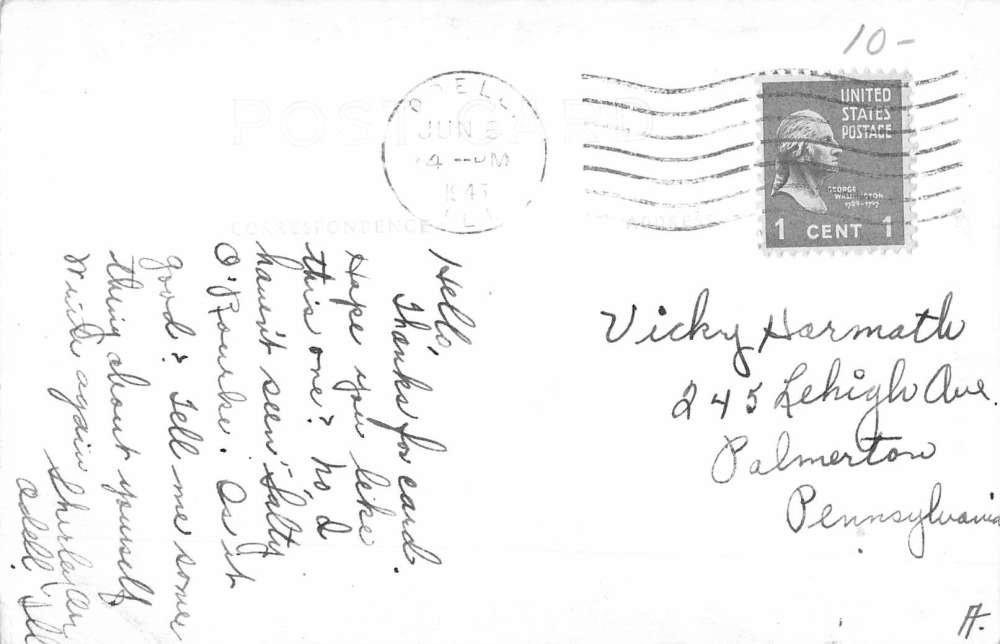 10-
POST CARD
ODELL,
JUN 5
4 -PM
194
ILL.
UNITED
STATES
POSTAGE
GEORGE
WASHINGTON
1789-1797
1 CENT 1
CORRESPONDENCE
ADDRESS
Hello,
Thanks for card.
Hope you like
this one? No, I
haven't seen "Salty
O'Rourke." Is it
good? Tell me some
thing about yourself
Write again
Odell, Ill
Vicky Harmath
245 Lehigh Ave.
Palmerton
Pennsylvania
A.